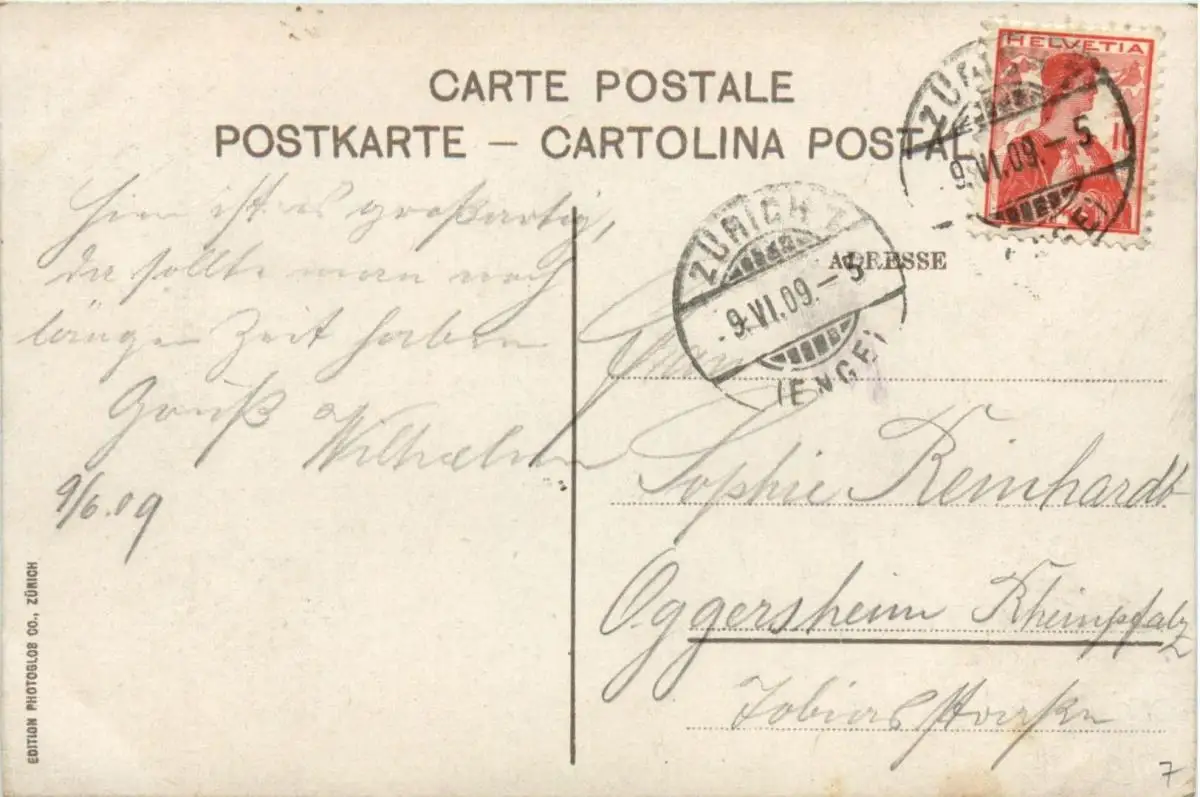 CARTE POSTALE
POSTKARTE – CARTOLINA POSTAL
HELVETIA
10
ZÜRICH
9.VI.09.–5
(ENGE)
ZÜRICH 2
9.VI.09.–5
(ENGE)
ADRESSE
Hier ist es großartig,
da sollte man noch
länger Zeit haben
Gruß
9/6.09
Sophie Reinhardt
Oggersheim Rheinpfalz
EDITION PHOTOGLOB CO., ZÜRICH
7